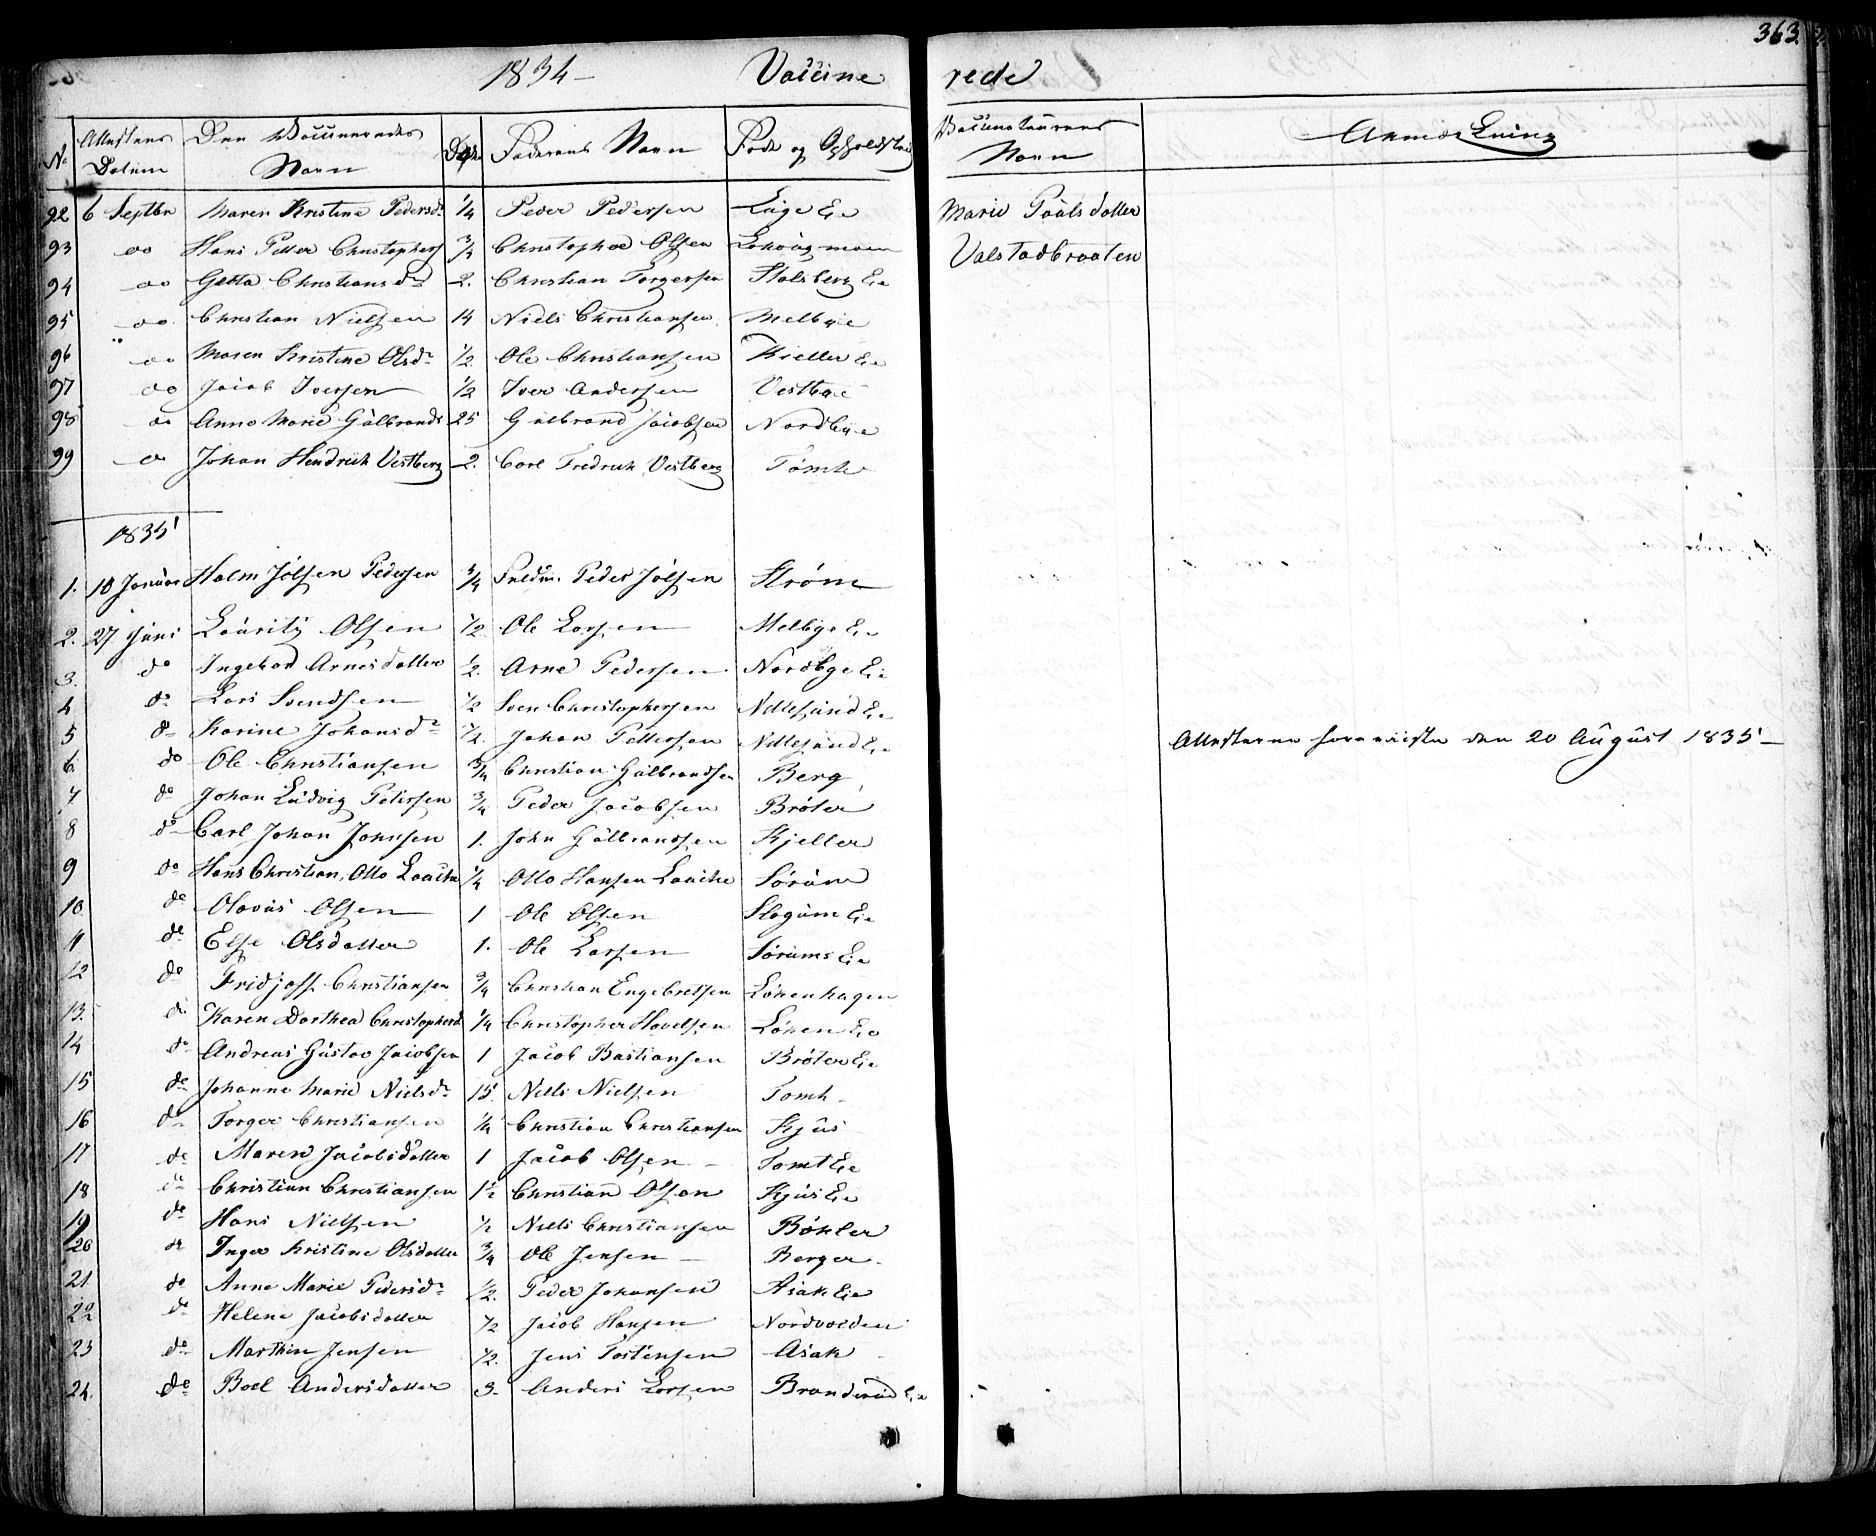 363.
1834 – Vaccine rede
No Attestens Datum Den Vaccineredes Navn Alder Faderens Navn Føde og Opholdsted Vaccinateurens Navn Anmærkning
92 6 Septbr Maren Kristine Pedersdr 1/4 Peder Pedersen Eie Marie Paalsdatter
93 do Hans Petter Christophers 3/4 Christopher Olsen Valstadbraaten
94 do Christiansdr 2. Christian Torgersen Stalsberg Eie
95 do Christian Nielsen 14 Niels Christiansen Melbye
96 do Maren Kristine Olsdr 1/2 Ole Christiansen Kjeller Eie
97 do Jacob Iversen 1/2 Iver Andersen Vestbye
98 do Anne Marie Gulbrands 25 Gulbrand Jacobsen Nordbye
99 do Johan Hendrich Vestberg 2. Carl Fredrich Vestberg Tomt
1835
1. 10 Januar Halm Jølsen Pedersen 3/4 Peder Jølsen Strøm
2. 27 Juni Lauritz Olsen 1/2 Ole Larsen Melbye Eie
3. do Ingebor Arnesdatter 1/2. Arne Pedersen Nordbye Eie
4 do Lars Svendsen 1/2 Sven Christophersen Nittesund Eie
5 do Karine Johansdr 1/2. Johan Pettersen Nittesund Eie Attesterne foreviiste den 20 August 1835 –
6. do Ole Christiansen 3/4 Christian Gulbrandsen Berg
7 do Johan Ludvig Petersen 3/4 Peder Jacobsen Brøter
8 do Carl Johan Johnsen 1. John Gulbrandsen Kjeller
9 do Hans Christian Otto Laache 1/4 Otto Hansen Laache Sørum
10. do Olavus Olsen 1 Ole Olsen Slogum Eie
11 do Else Olsdatter 1. Ole Larsen Sørums Eie
12 do Fridjoff Christiansen 3/4 Christian Engebretsen Løkenhagen
13. do Karen Dorthea Christophersd 1/4 Christopher Hovelsen Løken Eie
14 do Andreas Gustav Jacobsen 1 Jacob Bastiansen Brøter Eie
15 do Johanne Marie Nielsdr 15. Niels Nielsen Tomt
16 do Torger Christiansen 1/4 Christian Christiansen Kjus
17 do Maren Jacobsdatter 1 Jacob Olsen – Tomt Eie
18 do Christian Christiansen 1 1/2 Christian Olsen Kjus Eie
19 do Hans Nielsen 1/2 Niels Christiansen Bøhler
20 do Inger Kristine Olsdatter 3/4 Ole Jensen – Berger
21 do Anne Marie Pedersdr 1/2. Peder Johansen Asak Eie
22 do Helene Jacobsdatter 1/2 Jacob Hansen Nordvolden
23 do Marthin Jensen 1/2. Jens Tostensen Asak
24. do Boel Andersdatter 3. Anders Larsen Branderud Eie